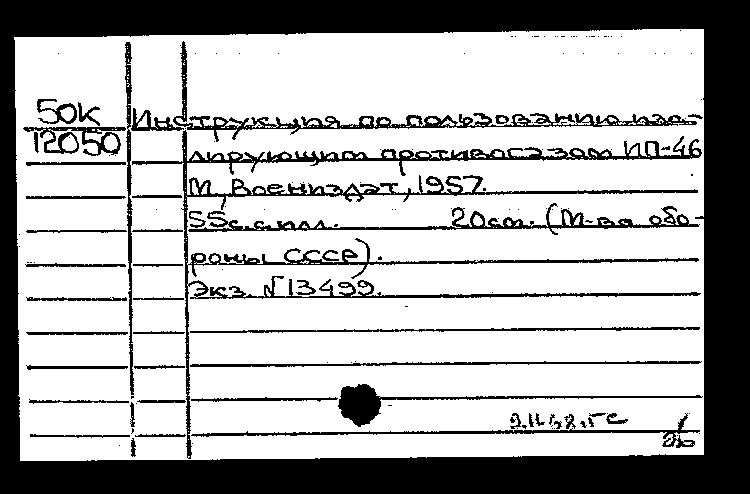 50К
12050
Инструкция по пользованию изо-
лирующим противогазом ИП-46
М, Воениздат, 1957.
55с. с илл. 20см. (М-ва обо-
роны СССР).
Экз. №13499.